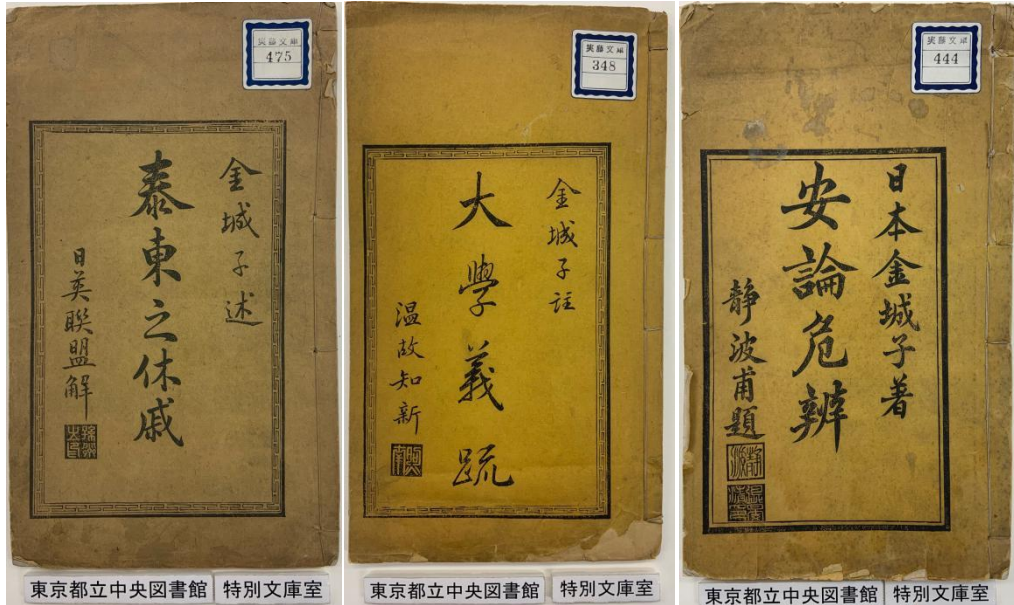 実藤文庫
475
金城子述
泰東之休戚
日英聯盟解
東京都立中央図書館 特別文庫室
実藤文庫
348
金城子註
大學義疏
温故知新
東京都立中央図書館 特別文庫室
実藤文庫
444
日本金城子著
安論危辨
靜波甫題
東京都立中央図書館 特別文庫室